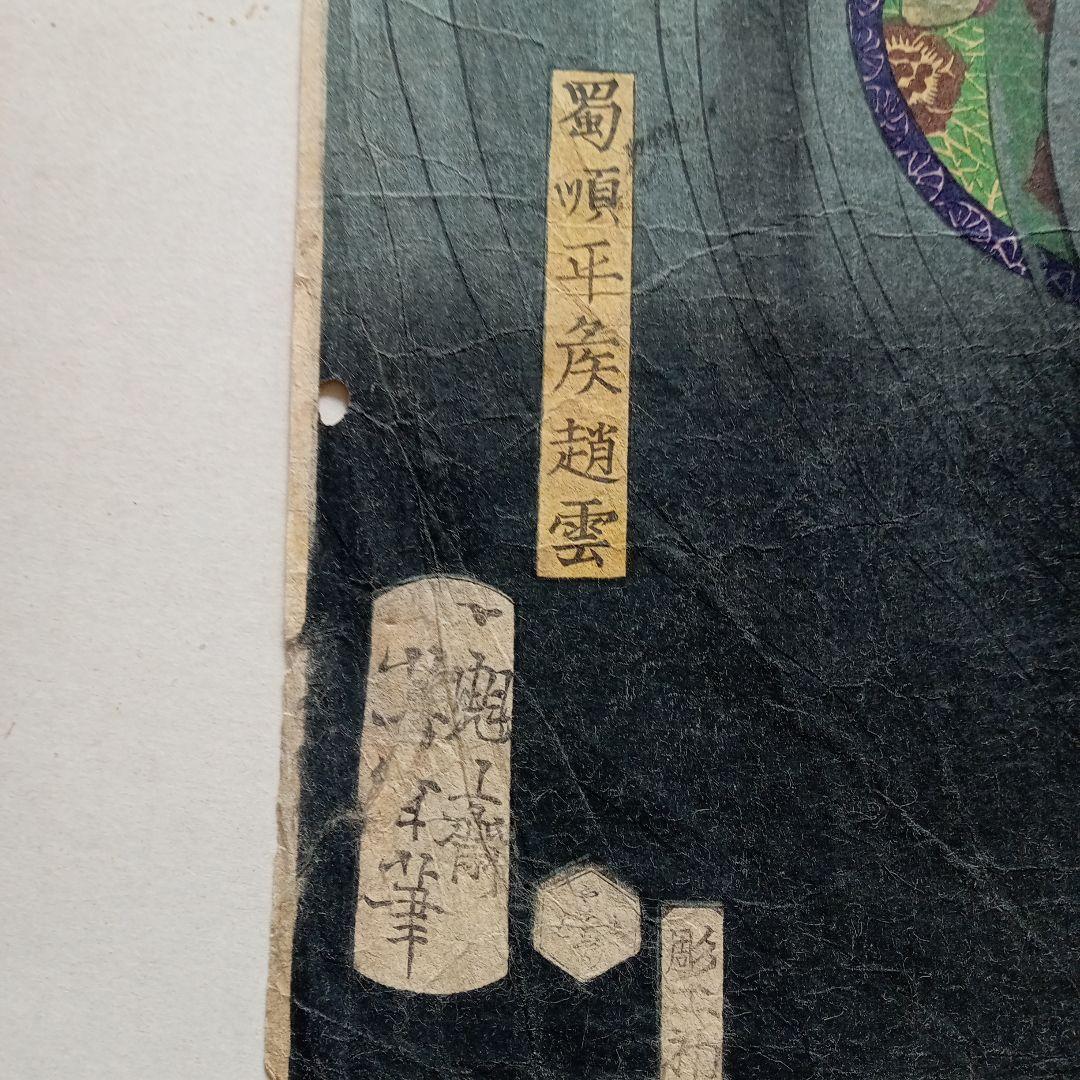 蜀順平侯趙雲
一魁齋
芳年筆
彫